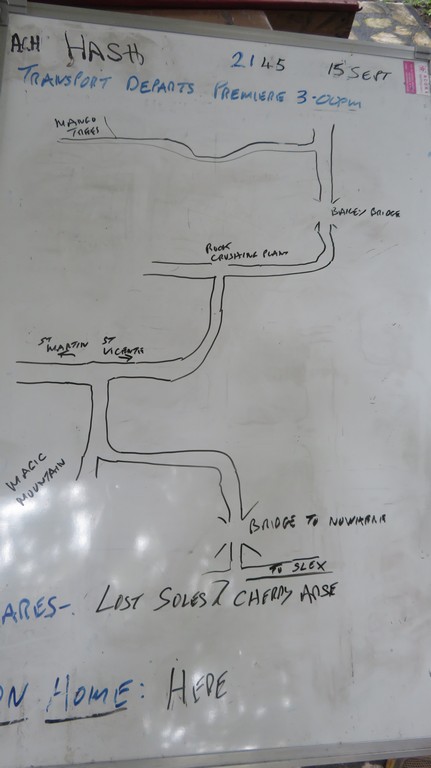 ACH HASH 2145 15 SEPT
TRANSPORT DEPARTS PREMIERE 3-00PM
MANGO
TREES
BAILEY BRIDGE
ROCK
CRUSHING PLANT
ST
MARTIN
ST
VICENTE
MAGIC
MOUNTAIN
BRIDGE TO NOWHERE
TO SLEX
ARES-. LOST SOLES & CHERRY ARSE
ON HOME: HERE